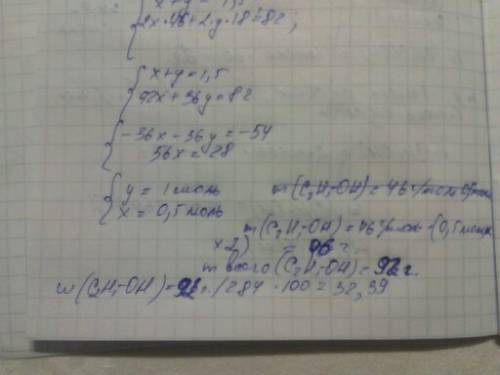 x+y=1,5
2x·46+2·y·18=82;
x+y=1,5
92x+36y=82
-36x-36y=-54
56x=28
y=1 моль
x=0,5 моль
m(C2H5OH)=46 г/моль·0,5моль
m(C2H5OH)=46 г/моль·(0,5моль
x2) = 96 г.
m всего (C2H5OH)=92 г.
w(C2H5OH)=92 г./284·100=32,39